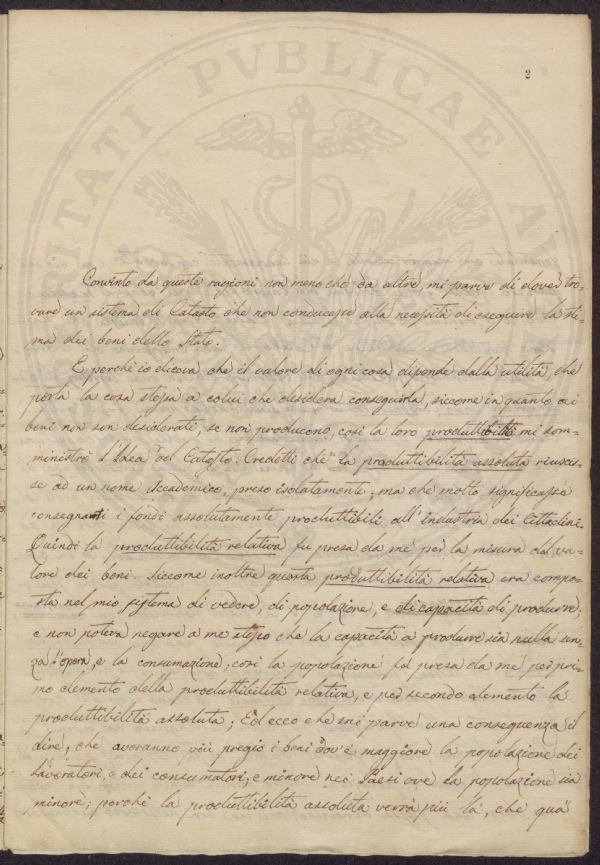 2
Convinto da queste ragioni non meno che da altre, mi parve di dover tro-
vare un sistema di Catasto che non conducesse alla necessità di eseguire la sti-
ma dei beni dello Stato.
E perchè io diceva che il valore di ogni cosa dipende dalla utilità, che
porta la cosa stessa a colui che desidera conseguirla, siccome in quanto ai
beni non son desiderati, se non producono, così la loro produttibilità mi som-
ministrò l'Idea del Catasto. Credetti che la produttibilità assoluta riuscis-
se ad un nome Accademico, preso isolatamente, ma che molto significasse
consegnanti i fondi assolutamente produttibili all'industria dei Cittadini.
Quindi la produttibilità relativa fu presa da me per la misura del va-
lore dei beni. Siccome inoltre questa produttibilità relativa era compo-
sta nel mio sistema di vedere, di popolazione, e di capacità di produrre;
e non poteva negare a me stesso che la capacità a produrre sia nulla sen-
za l'opera, e la consumazione; così la popolazione fu presa da me per pri-
mo elemento della produttibilità relativa, e per secondo elemento la
produttibilità assoluta; Ed ecco che mi parve una conseguenza il
dire, che averanno più pregio i beni dov'è maggiore la popolazione dei
Lavoratori, e dei consumatori, e minore nei Paesi ove la popolazione sia
minore; perchè la produttibilità assoluta verrà più là, che quà
PUBLICAE